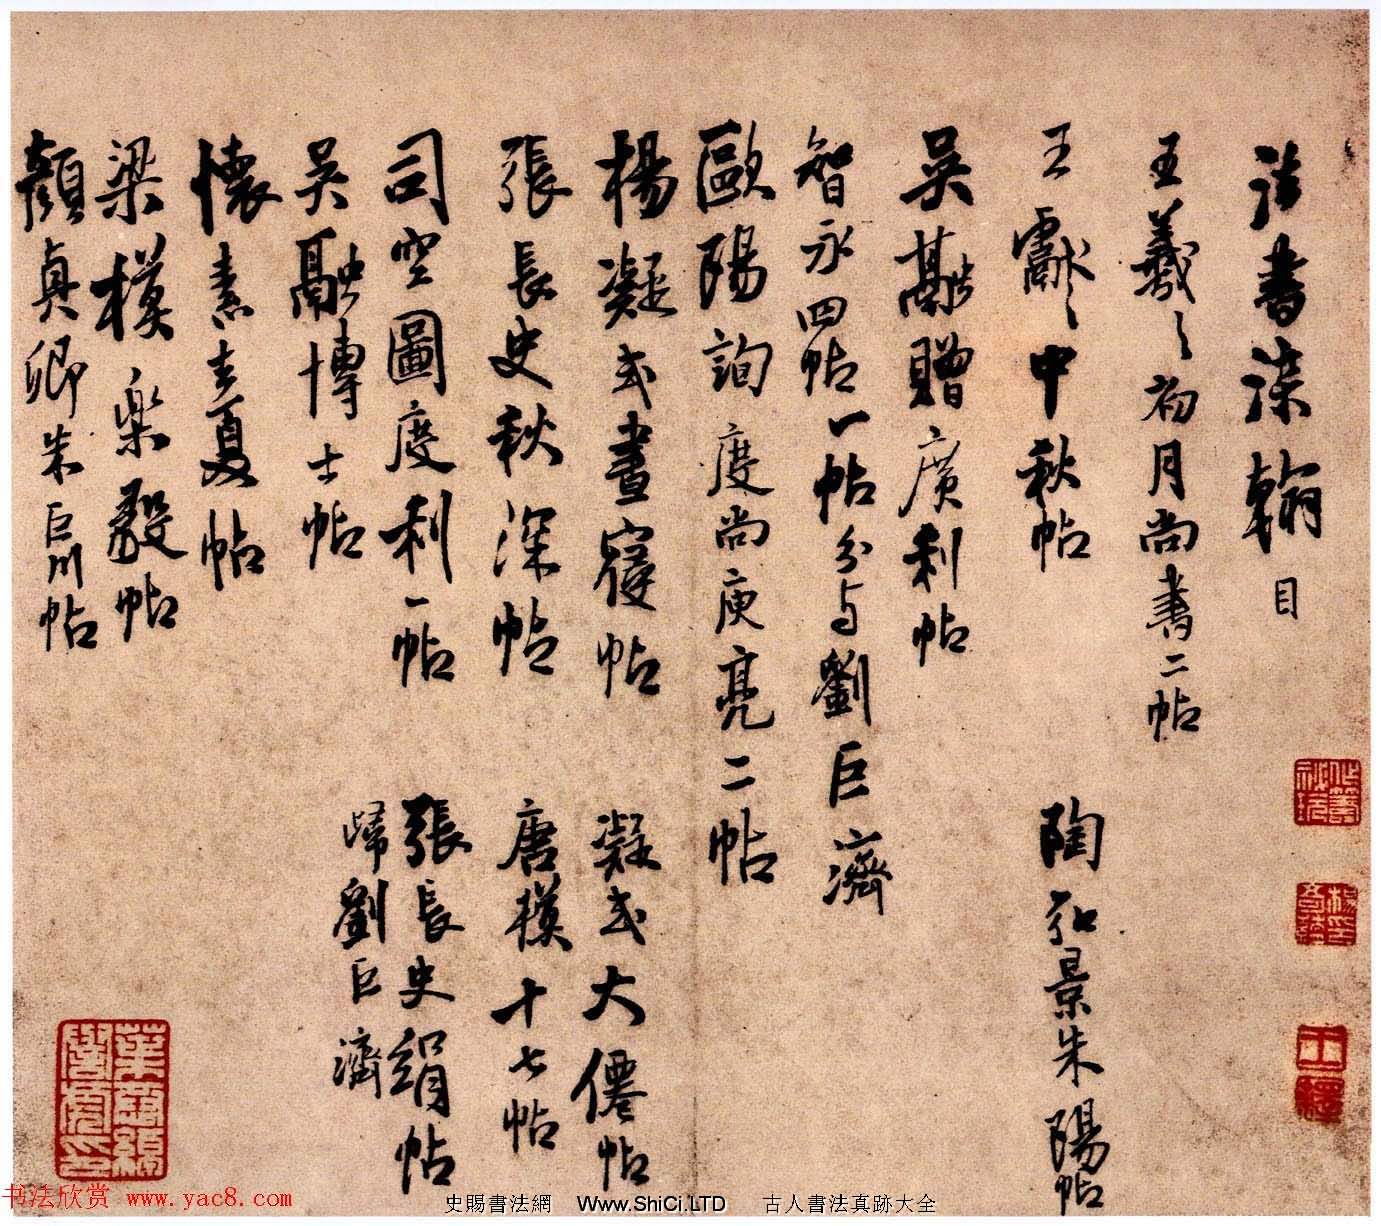 法書染翰目
王羲之初月尚書二帖
王獻之中秋帖 陶弘景朱陽帖
吳融贈廣利帖
智永四帖一帖分与劉巨濟
歐陽詢度尚庾亮二帖
楊凝式晝寢帖 凝式大僊帖
張長史秋深帖 唐模十七帖
司空圖度利一帖 張長史絹帖
吳融博士帖 歸劉巨濟
懷素去夏帖
梁模樂毅帖
顏真卿朱巨川帖
葉恭綽譽虎印
书法欣赏 www.yac8.com
史賜書法網 Www.ShiCi.LTD 古人書法真跡大全